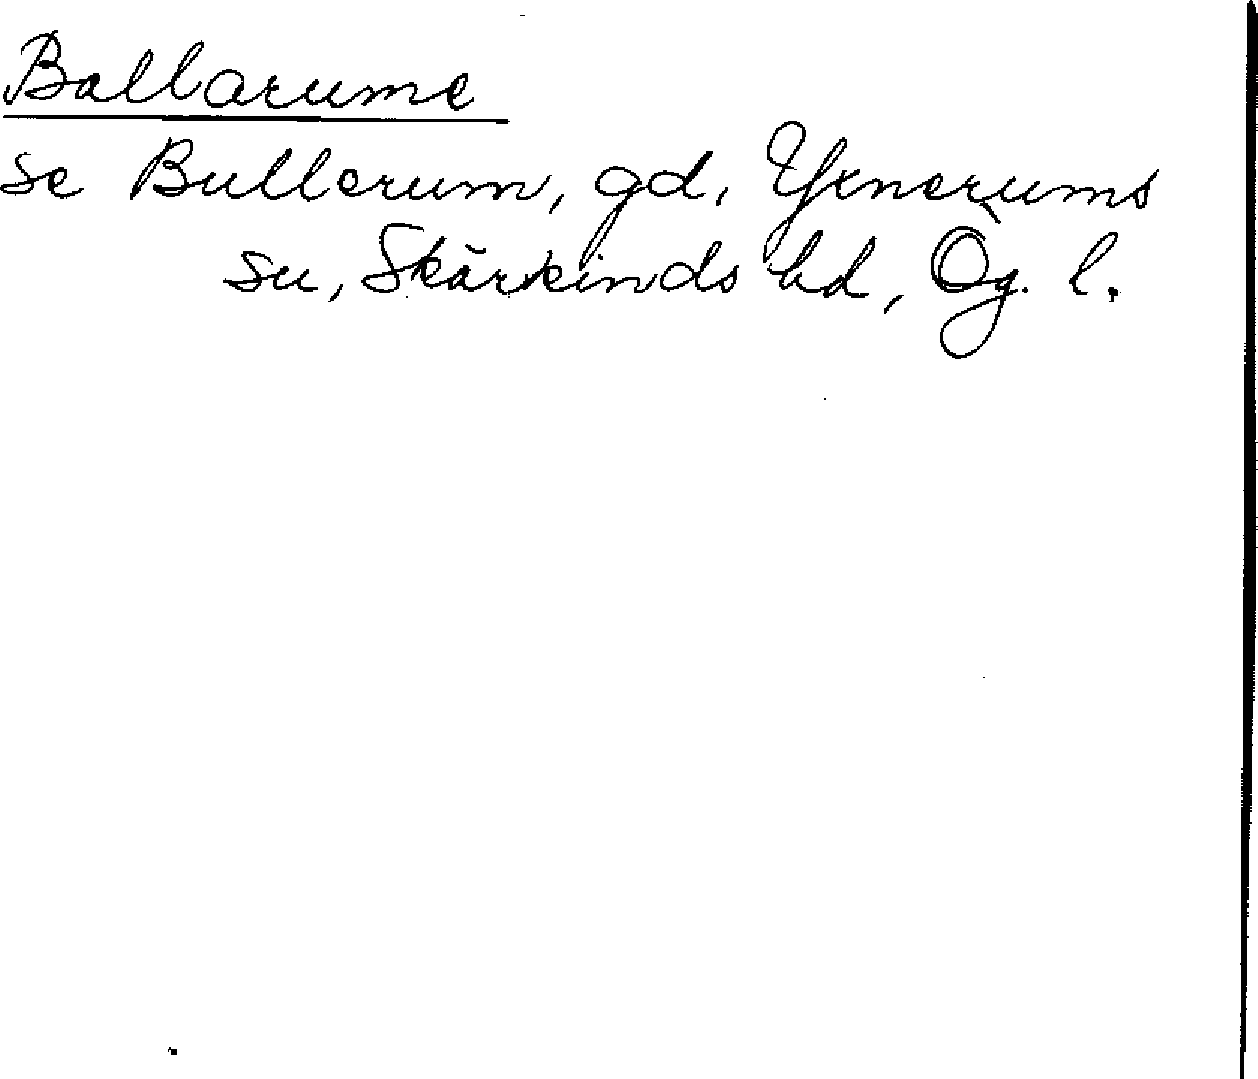 Ballarume
se Bullerum, gd, Yxnerums
sn, Skärkinds hd, Ög. l.